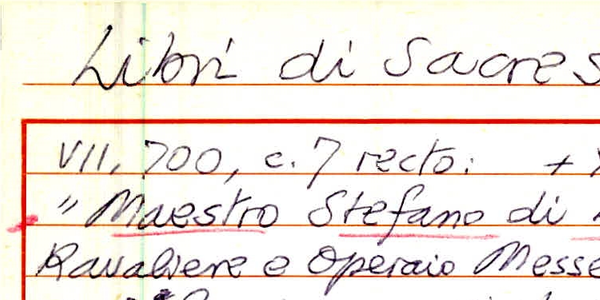 Libri di Sacres
VII, 700, c. 7 recto: +
" Maestro Stefano di
Kavaliere e Operaio Messe